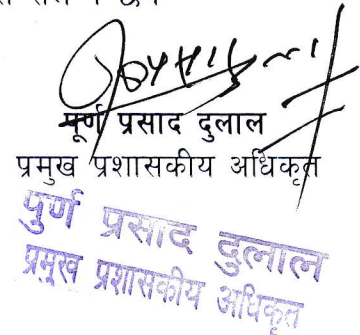 पूर्ण प्रसाद दुलाल
प्रमुख प्रशासकीय अधिकृत
पुर्ण प्रसाद दुलाल
प्रमुख प्रशासकीय अधिकृत